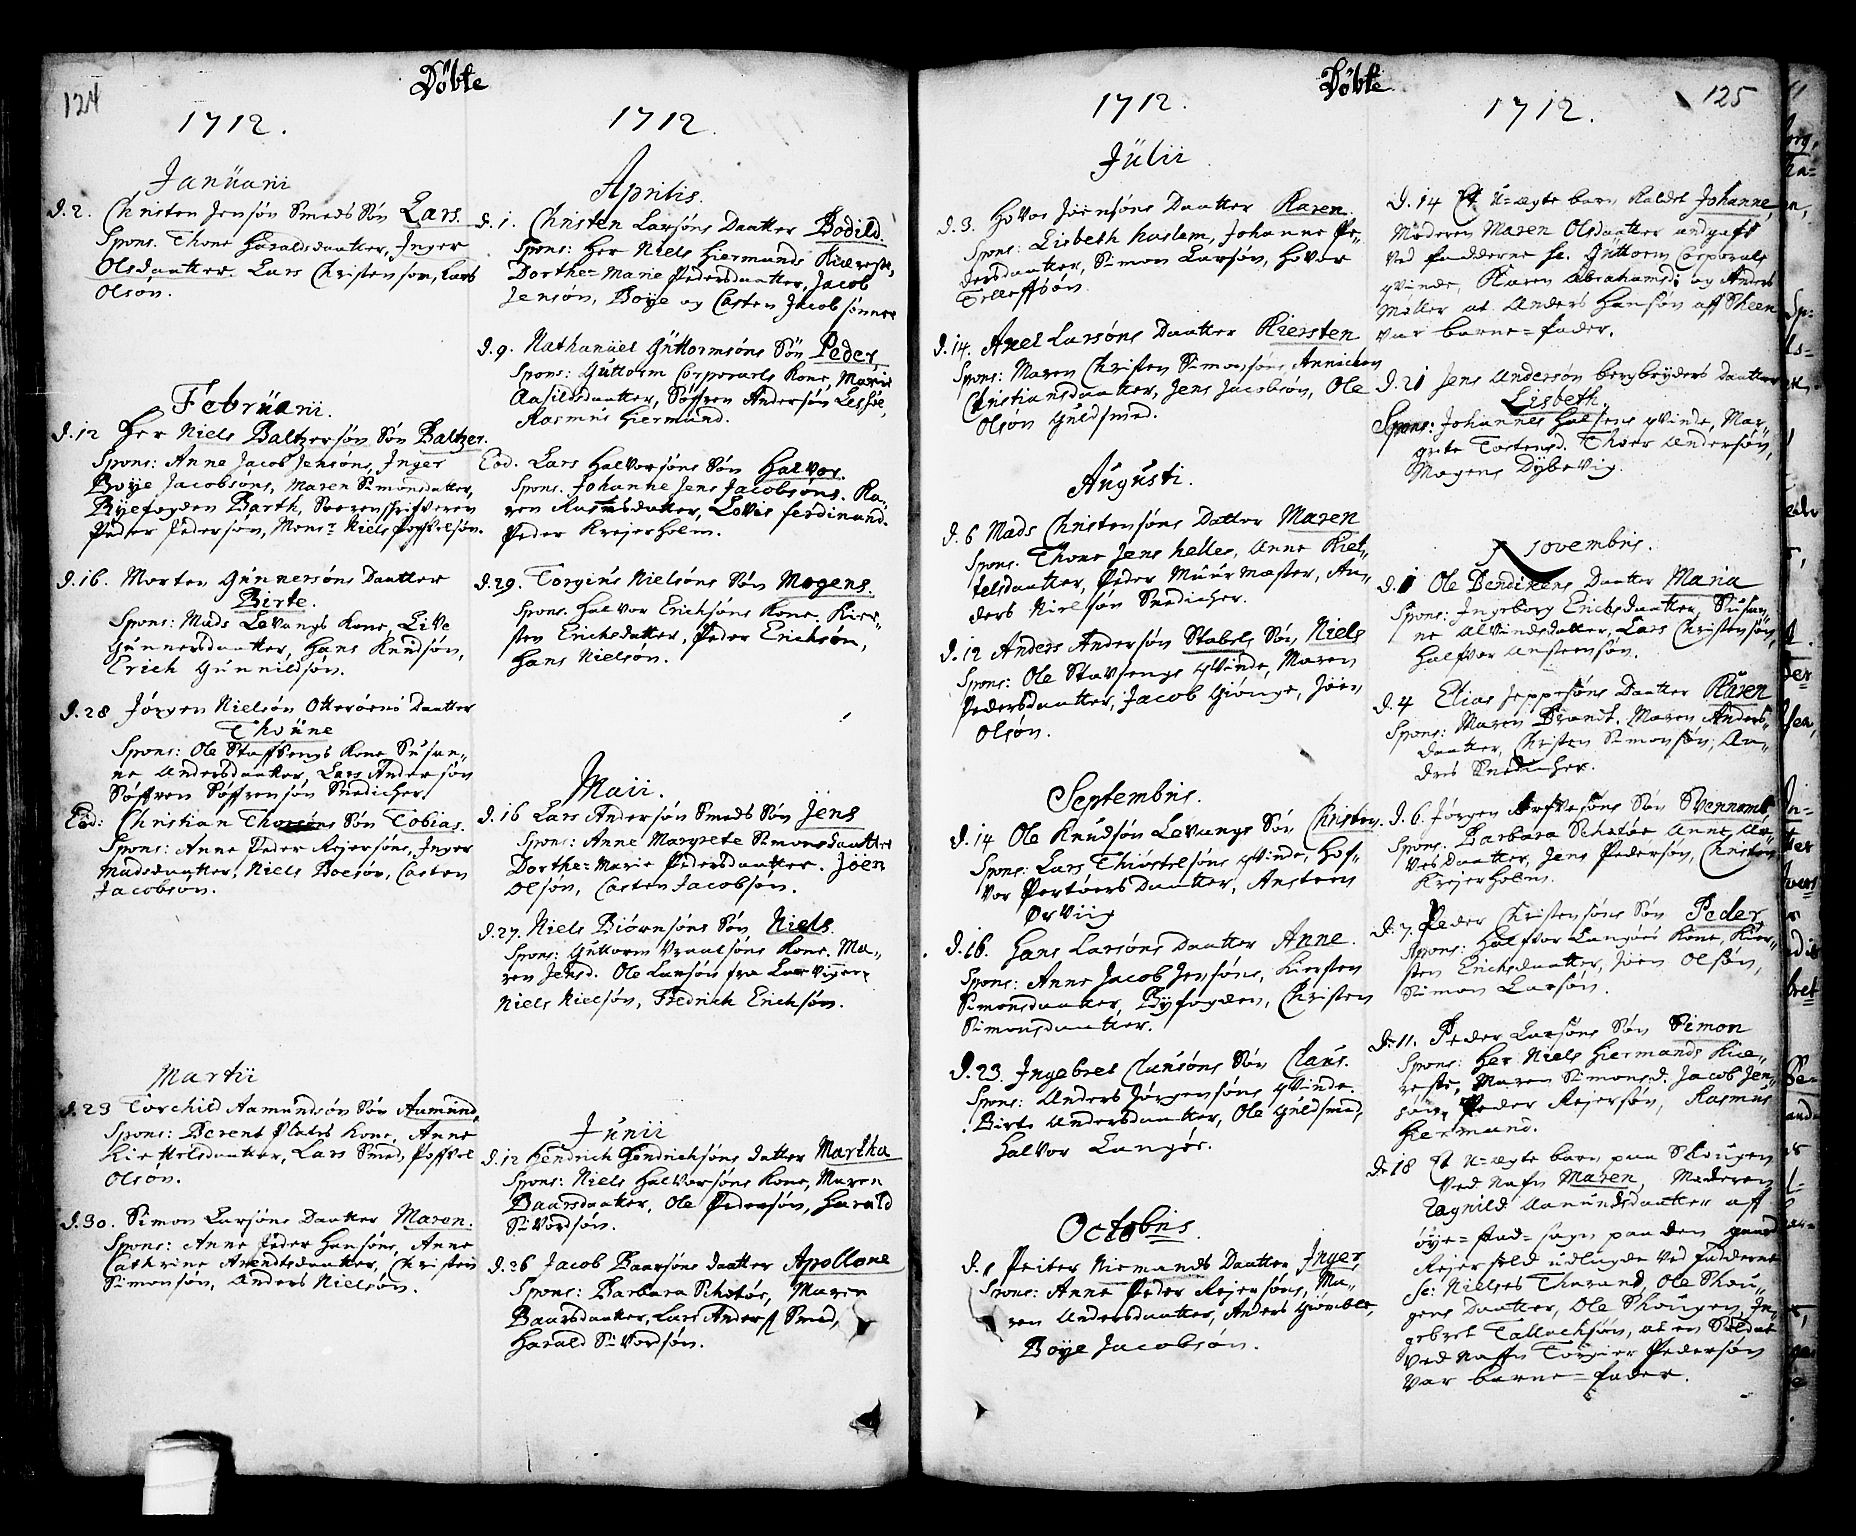 124
Döbte
1712.
Januarii
d. 2. Christen Jensøn Smeds Søn Lars.
Spons. Thone Haraldsdaatter, Inger
Olsdaatter. Lars Christensøn, Lars
Olsøn.
Februarii.
d. 12 Her Niels Baltzersøn Søn Baltzer.
Spons: Anne Jacob Jensøns, Inger
Boye Jacobsøns, Maren Simonsdatter,
Byefogden Barth, Sorenschrifveren
Peder Pedersøn, Mons: Niels Povelsøn.
d. 16. Morten Gunnersøns Daatter
Birte.
Spons: Mads Levangs Kone, Live
Gunnersdaatter, Hans Knudsøn,
Erich Gunnildsøn.
d. 28 Jørgen Nielsøn Otterøens Daatter
Thonne
Spons: Ole Staffsengs Kone Susan-
ne Andersdaatter, Lars Andersøn
Søffren Søffrensøn Snedicher.
Eod: Christian Thorsøns Søn Tobias.
Spons: Anne Peder Rejersøns, Inger
Madsdaatter, Niels Boesøn, Casten
Jacobsøn.
Martii
d. 23 Torchild Aamundsøn Søn Aamund,
Spons: Berent Plates Kone, Anne
Kittelsdaatter, Lars Smed, Poffvel
Olsøn.
d. 30. Simon Larsøns Daatter Maren.
Spons: Anne Peder Hansøns, Anne
Cathrine Arendsdaatter, Christen
Simonsøn, Anders Nielsøn.
1712.
Aprilis.
d. 1. Christen Larsøns Daatter Bodild.
Spons: Her Niels Hiermands Kiereste,
Dorthe-Marie Pedersdaatter, Jacob
Jensøn, Boye og Casten Jacobsønner
d. 9. Nathanael Guttormsøns Søn Peder,
Spons: Guttorm Corporals Kone, Marie
Aasildsdaatter, Søffren Andersøn Lessøe,
Rasmus Hiermand.
Eod. Lars Halvorsøns Søn Halvor.
Spons. Johanne Jens Jacobsøns. Ka-
ren Rasmusdatter, Lovis Ferdinand.
Peder Krejerholm.
d. 29. Torgius Nielsøns Søn Mogens.
Spons. Halvor Erichsøns Kone. Kier-
sten Erichsdatter, Peder Erichsøn,
Hans Nielsøn.
Maii.
d. 16 Lars Andersøn Smeds Søn Jens
Spons: Anne Margrete Simonsdaatter
Dorthe-Marie Pedersdaatter. Joen
Olsøn, Casten Jacobsøn.
d. 27. Niels Biørnsøns Søn, Niels.
Spons: Guttorm Vraalsøns Kone. Ma-
ren Jensd. Ole Larsøn fra Larvigen
Niels Nielsøn, Fredrich Erichsøn.
Junii
d. 12 Hendrich Hendrichsøns datter Martha
Spons: Niels Halvorsøns Kone, Maren
Baarsdaatter, Ole Pedersøn, Harald
Sivordsøn.
d. 26 Jacob Baarsøns daatter Apollone
Spons: Barbara Schotøe, Maren
Baarsdaatter, Lars Anders Smed,
Harald Sivordsøn.
Döbte
1712.
Julii
d. 3. Hover Joensøns Daatter Karen.
Spons: Lisbeth Haslem, Johanne Pe-
dersdaatter, Simon Larsøn, Hover
Telleffsøn.
d. 14. Axel Larsøns Daatter Kiersten
Spons: Maren Christen Simonsøns, Annichen
Christiansdaatter, Jens Jacobsøn, Ole
Olsøn Guldsmed.
Augusti.
d. 6 Mads Christensøns Datter Maren
Spons. Thone Jens Helles, Anne Kiet-
telsdaatter, Peder Muurmester, An-
ders Nielsøn Snedicher.
d. 12 Anders Andersøn Stabels Søn Niels
Spons: Ole Stavsengs qvinde, Maren
Pedersdaatter, Jacob Giønge, Joen
Olsøn.
Septembris.
d. 14 Ole Knudsøn Levangs Søn Christen.
Spons: Lars Thiøstelsøns qvinde, Hof-
vor Portøers Daatter, Ansteen
Ørviig
d. 16. Hans Larsøns Daatter Anne.
Spons: Anne Jacob Jensøns, Kiersten
Simonsdaatter, Byfogden, Christen
Simonsdaatter.
d. 23. Ingebret Clausøns Søn Claus.
Spons: Anders Jørgensøns qvinde.
Birte Andersdaatter, Ole Guldsmed,
Halvor Langøe.
Octobris.
d. 1 Peiter Niemands Daatter Inger,
Spons: Anne Peder Rejersøns, Ma-
ren Andersdaatter, Anders Giømble,
Boye Jacobsøn.
125
1712.
d. 14 Et U-ægte barn kaldet Johanne,
Moderen Maren Olsdaatter angaff
ved fadderne sc. Guttorm Corporals
qvinde, Karen Abrahamsd: og Anders
Møller at Anders Hansøn aff Skeen
var barne-fader.
d. 21 Jens Andersøn bergbryders Daatter
Lisbeth.
Spons: Johannes Halsens qvinde, Mar-
grete Tostensd. Thoer Andersøn,
Mogens Dybevig.
Novembris.
d. 1 Ole Bendixens Daatter Maria
Spons: Ingeborg Erichsdaatter, Susan-
ne Alvindsdatter, Lars Christensøn,
Halfvor Anstensøn.
d. 4 Elias Jeppesøns Daatter Karen
Spons: Maren Brandt, Maren Anders-
daatter, Christen Simonsøn, An-
ders Snedicher.
d. 6. Jørgen Arfvesøns Søn Svennom
Spons. Barbara Schotøe Anne Ar-
vesdaatter, Jens Pedersøn, Christen
Krejerholm.
d. 7. Peder Christensøns Søn Peder
Spons: Halfvor Langøes Kone, Kier-
sten Erichsdaatter, Joen Olsøn,
Simon Larsøn.
d. 11. Peder Larsøns Søn Simon
Spons: Her Niels Hiermands Kie-
reste, Maren Simonsd. Jacob Jen-
søn, Peder Rejersøn, Rasmus
Hiermand.
d. 18 Et U-ægte barn paa Skougen
ved nafn Maren, Moderen
Tagnild Aamundsdaatter aff
øye-stad-sogn paa den gaard
Rejersfeld udlagde ved fadderne
sc: Nielses Tharand, Ole Skou-
gens Daatter, Ole Skougen, In-
gebret Tallachsøn, at en Soldat
ved naffn Torgier Pedersøn
var barne-fader.